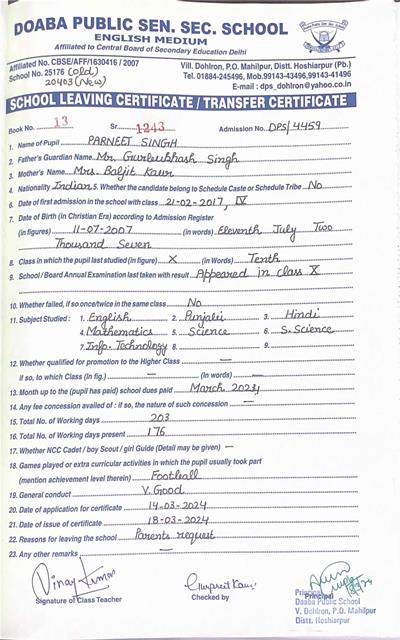 DOABA PUBLIC SEN. SEC. SCHOOL
ENGLISH MEDIUM
Affiliated to Central Board of Secondary Education Delhi
Affiliated No. CBSE/AFF/1630416 / 2007
School No. 25176 (old)
20403 (New)
Vill. Dohlron, P.O. Mahilpur, Distt. Hoshiarpur (Pb.)
Tel. 01884-245496, Mob.99143-43496,99143-41496
E-mail : dps_dohlron@yahoo.co.in
SCHOOL LEAVING CERTIFICATE / TRANSFER CERTIFICATE
Book No. 13 Sr. 1243 Admission No. DPS/4459
1. Name of Pupil PARNEET SINGH
2. Father's Guardian Name Mr. Gurbukhash Singh
3. Mother's Name Mrs. Baljit Kaur
4. Nationality Indian 5. Whether the candidate belong to Schedule Caste or Schedule Tribe No
6. Date of first admission in the school with class 21-02-2017, IV
7. Date of Birth (in Christian Era) according to Admission Register
(in figures) 11-07-2007 (in words) Eleventh July Two
Thousand Seven
8. Class in which the pupil last studied (in figure) X (in Words) Tenth
9. School / Board Annual Examination last taken with result Appeared in class X
10. Whether failed, if so once/twice in the same class No
11. Subject Studied : 1. English 2. Punjabi 3. Hindi
4. Mathematics 5. Science 6. S. Science
7. Info. Technology 8. 9.
12. Whether qualified for promotion to the Higher Class —
if so, to which Class (In fig.) — (In words) —
13. Month up to the (pupil has paid) school dues paid March 2023
14. Any fee concession availed of : if so, the nature of such concession —
15. Total No. of Working days 203
16. Total No. of Working days present 176
17. Whether NCC Cadet / boy Scout / girl Guide (Detail may be given) —
18. Games played or extra curricular activities in which the pupil usually took part
(mention achievement level therein) Football
19. General conduct V. Good
20. Date of application for certificate 14-03-2024
21. Date of issue of certificate 18-03-2024
22. Reasons for leaving the school Parents request
23. Any other remarks —
Vinay Kumar
Signature of Class Teacher
Gurpreet Kaur
Checked by
Principal
Principal
Doaba Public School
V. Dohlron, P.O. Mahilpur
Distt. Hoshiarpur